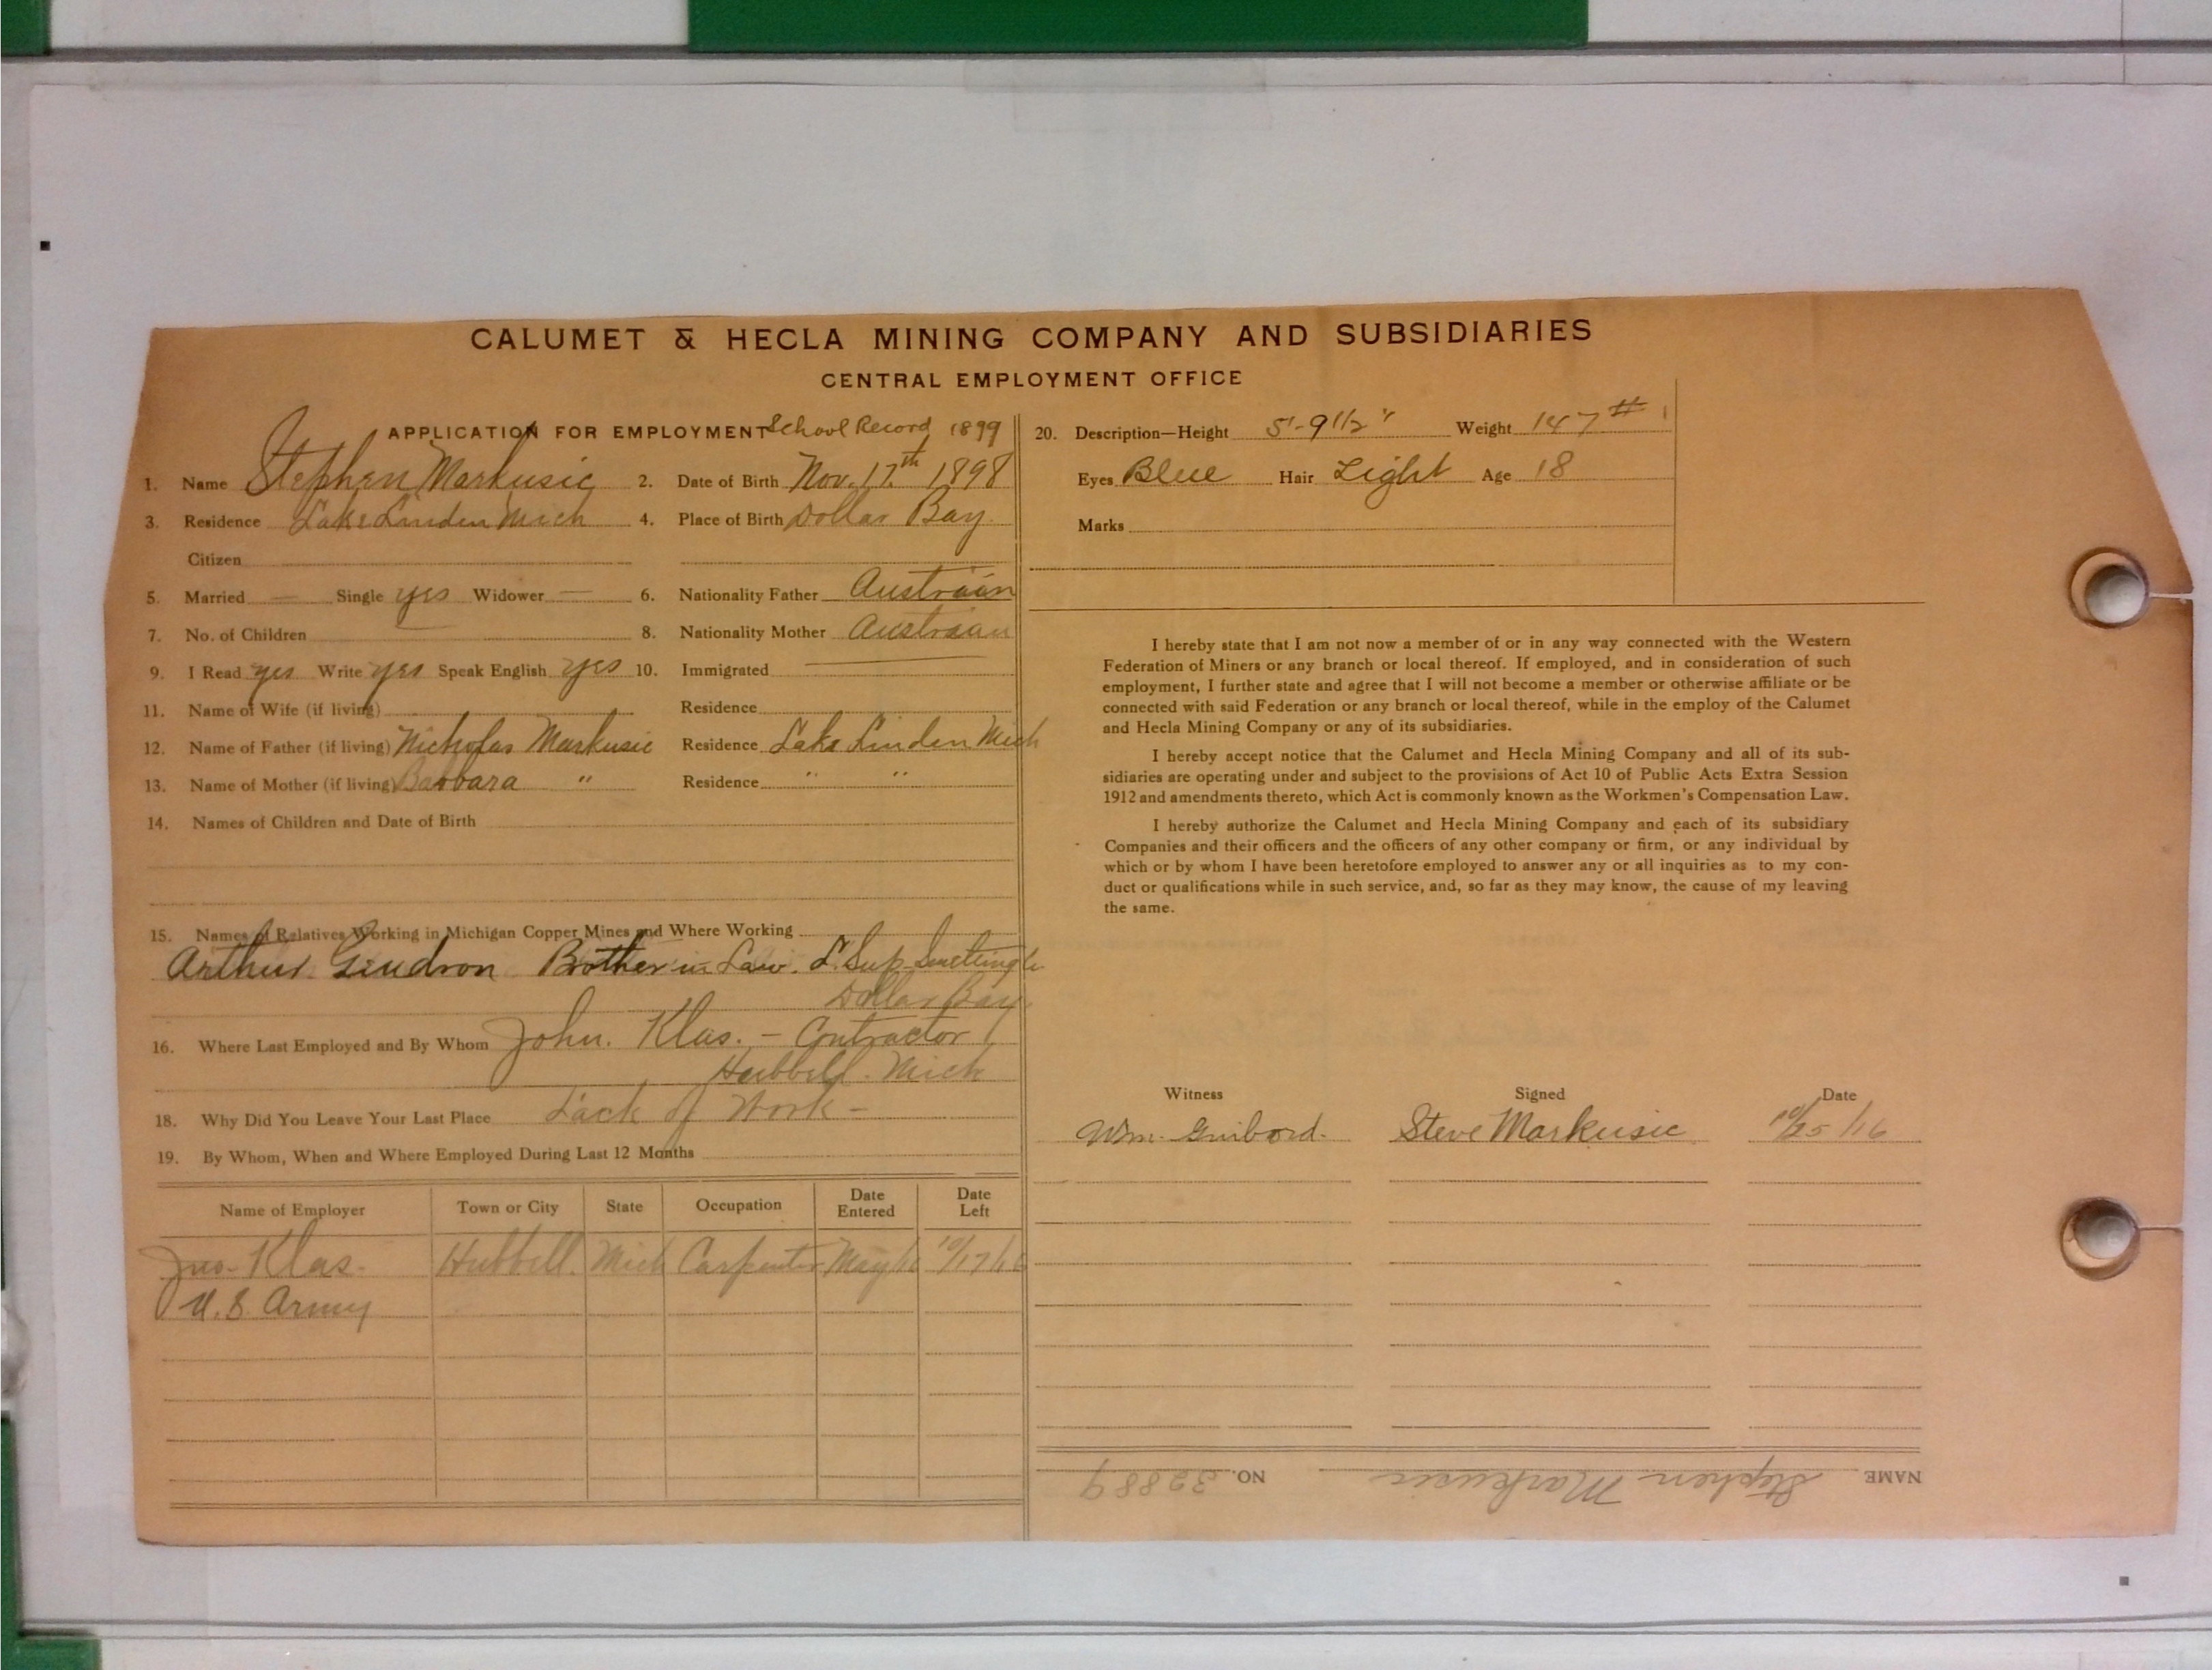 CALUMET & HECLA MINING COMPANY AND SUBSIDIARIES
CENTRAL EMPLOYMENT OFFICE
APPLICATION FOR EMPLOYMENT School Record 1899
1. Name Stephen Markusic 2. Date of Birth Nov. 17th 1898
3. Residence Lake Linden Mich 4. Place of Birth Dollar Bay
Citizen
5. Married — Single yes Widower — 6. Nationality Father Austrian
7. No. of Children 8. Nationality Mother Austrian
9. I Read yes Write yes Speak English yes 10. Immigrated —
11. Name of Wife (if living) Residence
12. Name of Father (if living) Nicholas Markusic Residence Lake Linden Mich
13. Name of Mother (if living) Barbara " Residence " "
14. Names of Children and Date of Birth
15. Names of Relatives Working in Michigan Copper Mines and Where Working
Arthur Gendron Brother in Law. L. Sup. Smelting
Dollar Bay
16. Where Last Employed and By Whom John. Klas. - Contractor
Hubbell. Mich
18. Why Did You Leave Your Last Place Lack of Work -
19. By Whom, When and Where Employed During Last 12 Months
Name of Employer Town or City State Occupation Date Entered Date Left
Jno. Klas. Hubbell. Mich Carpenter May/16 10/17/16
U.S. Army
20. Description—Height 5'-9 1/2" Weight 147 #
Eyes Blue Hair Light Age 18
Marks
I hereby state that I am not now a member of or in any way connected with the Western
Federation of Miners or any branch or local thereof. If employed, and in consideration of such
employment, I further state and agree that I will not become a member or otherwise affiliate or be
connected with said Federation or any branch or local thereof, while in the employ of the Calumet
and Hecla Mining Company or any of its subsidiaries.
I hereby accept notice that the Calumet and Hecla Mining Company and all of its sub-
sidiaries are operating under and subject to the provisions of Act 10 of Public Acts Extra Session
1912 and amendments thereto, which Act is commonly known as the Workmen's Compensation Law.
I hereby authorize the Calumet and Hecla Mining Company and each of its subsidiary
Companies and their officers and the officers of any other company or firm, or any individual by
which or by whom I have been heretofore employed to answer any or all inquiries as to my con-
duct or qualifications while in such service, and, so far as they may know, the cause of my leaving
the same.
Witness Signed Date
Wm. Guibord. Steve Markusic 10/25/16
NAME Stephen Markusic NO. 32889